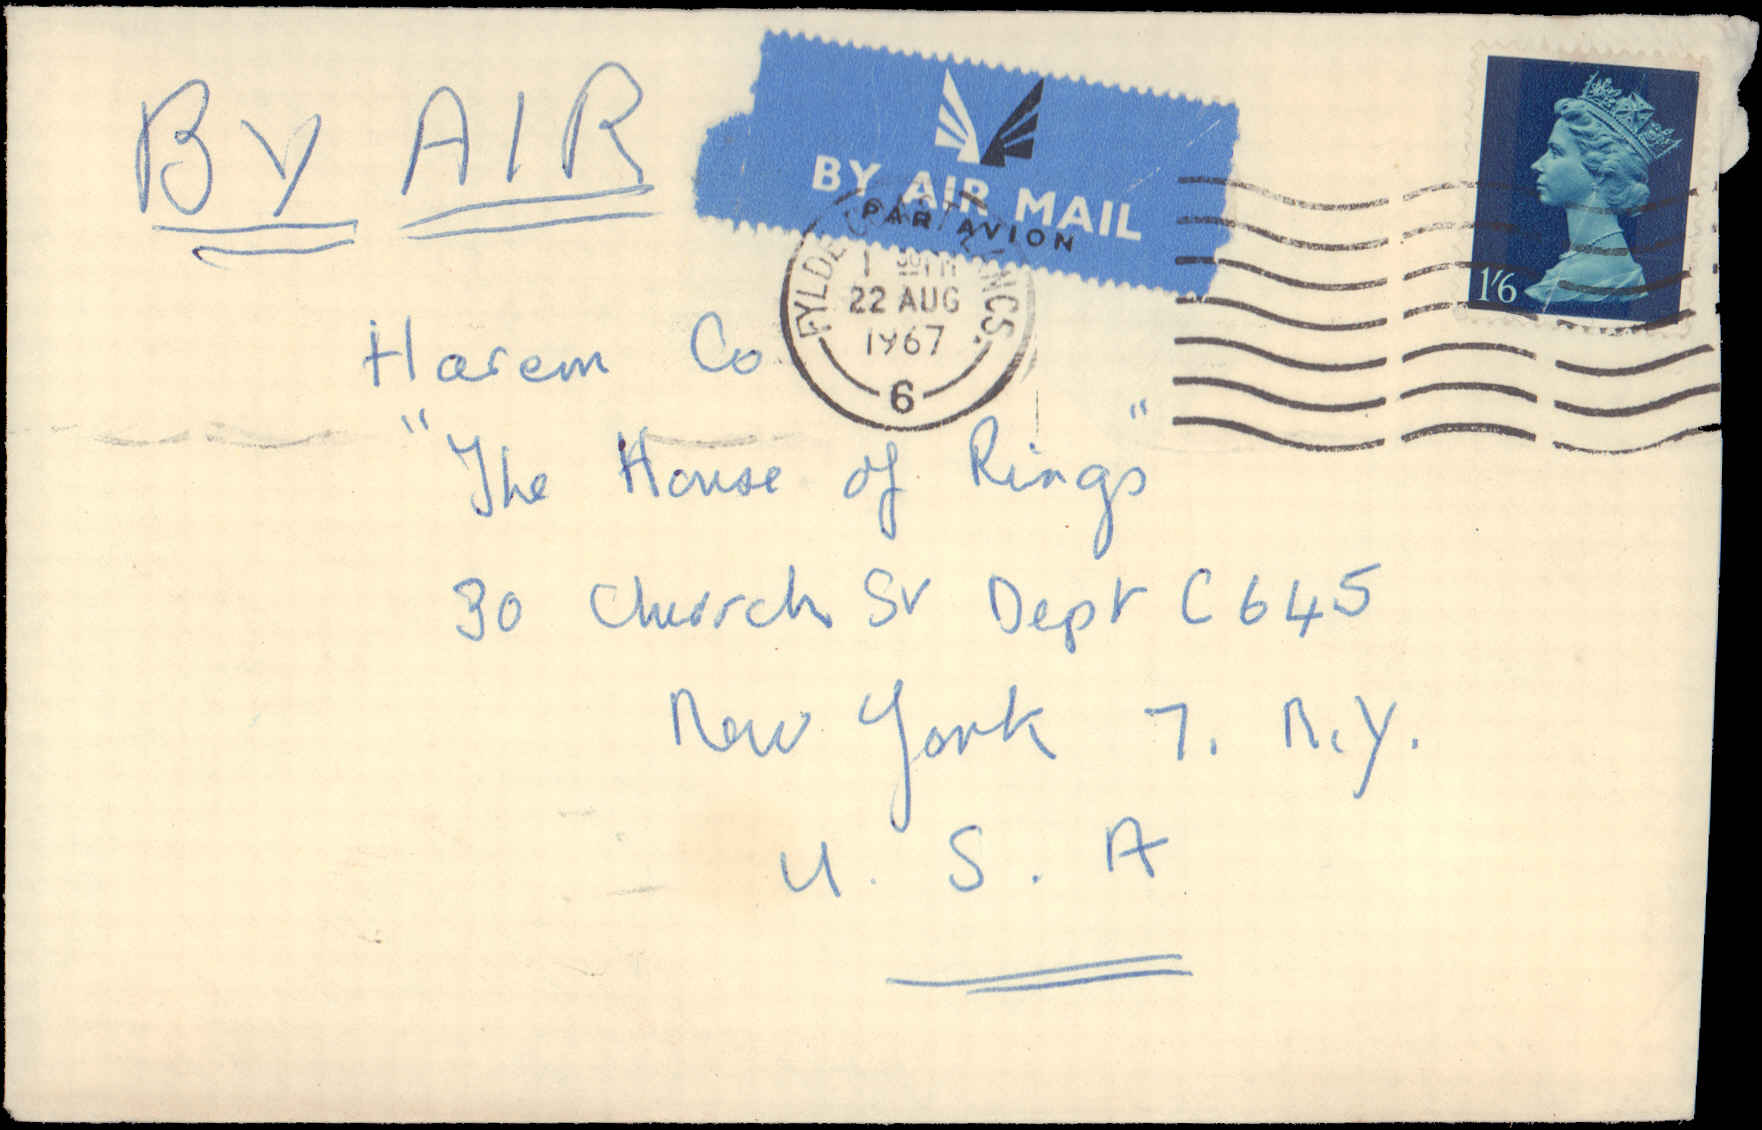 BY AIR
BY AIR MAIL
PAR AVION
1'6
FYLDE LANCS.
1 30 PM
22 AUG
1967
6
Harem Co
"The House of Rings"
30 Church St Dept C645
New York 7. N.Y.
U. S. A